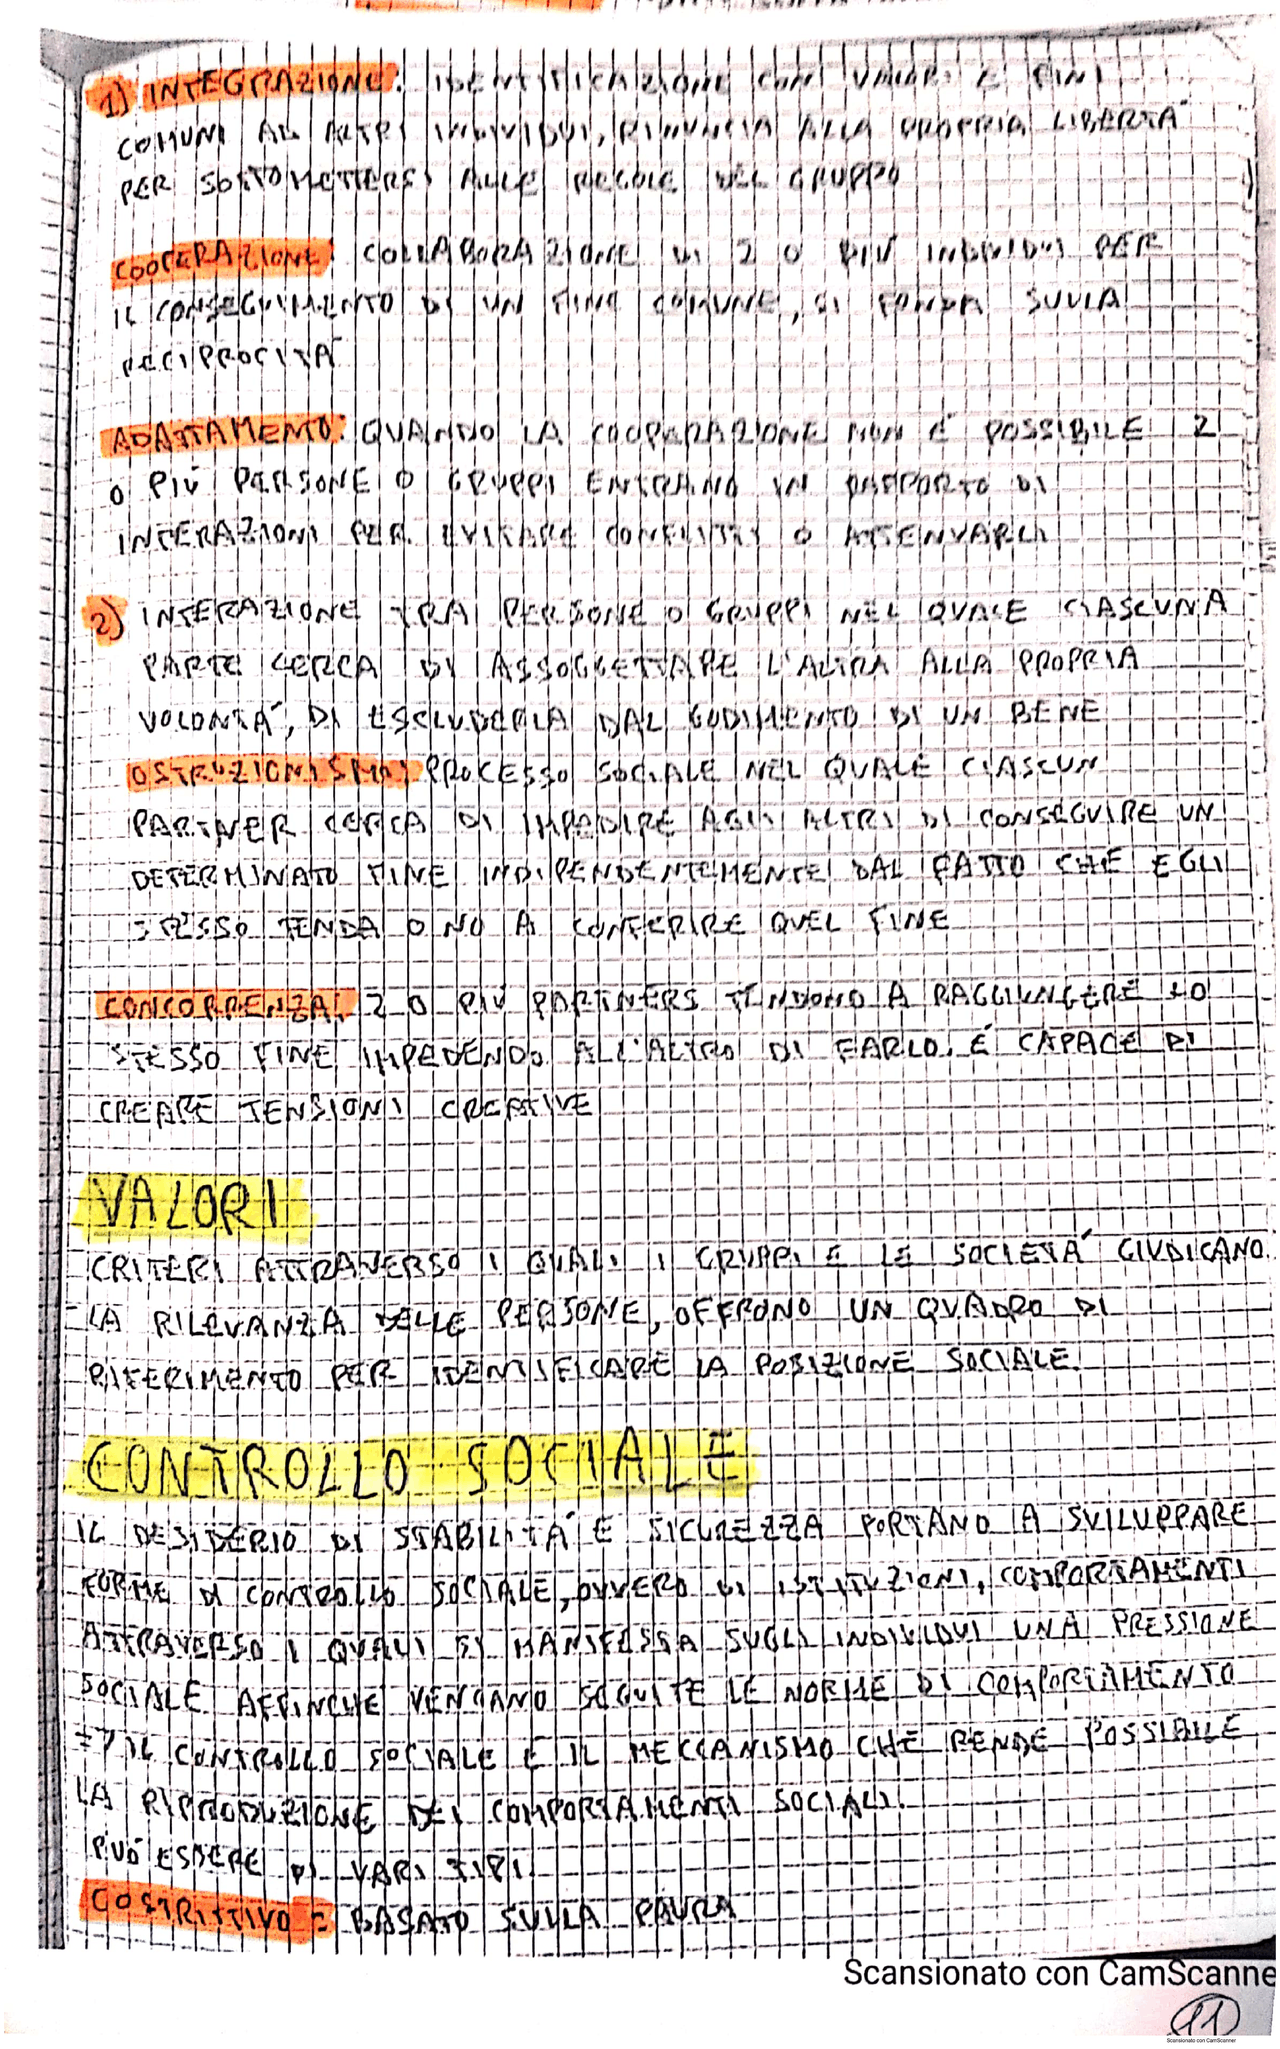 1) INTEGRAZIONE: IDENTIFICAZIONE CON VALORI E FINI
COMUNI AD ALTRI INDIVIDUI, RINUNCIA ALLA PROPRIA LIBERTÀ
PER SOTTOMETTERSI ALLE REGOLE DEL GRUPPO
COOPERAZIONE: COLLABORAZIONE DI 2 O PIÙ INDIVIDUI PER
IL CONSEGUIMENTO DI UN FINE COMUNE, SI FONDA SULLA
RECIPROCITÀ
ADATTAMENTO: QUANDO LA COOPERAZIONE NON È POSSIBILE 2
O PIÙ PERSONE O GRUPPI ENTRANO IN RAPPORTO DI
INTERAZIONI PER EVITARE CONFLITTI O ATTENUARLI
2) INTERAZIONE TRA PERSONE O GRUPPI NEL QUALE CIASCUNA
PARTE CERCA DI ASSOGGETTARE L'ALTRA ALLA PROPRIA
VOLONTÀ, DI ESCLUDERLA DAL GODIMENTO DI UN BENE
OSTRUZIONISMO: PROCESSO SOCIALE NEL QUALE CIASCUN
PARTNER CERCA DI IMPEDIRE AGLI ALTRI DI CONSEGUIRE UN
DETERMINATO FINE INDIPENDENTEMENTE DAL FATTO CHE EGLI
STESSO TENDA O NO A CONFERIRE QUEL FINE
CONCORRENZA: 2 O PIÙ PARTNERS TENDONO A RAGGIUNGERE LO
STESSO FINE IMPEDENDO ALL'ALTRO DI FARLO. È CAPACE DI
CREARE TENSIONI CREATIVE
VALORI
CRITERI ATTRAVERSO I QUALI I GRUPPI E LE SOCIETÀ GIUDICANO
LA RILEVANZA DELLE PERSONE, OFFRONO UN QUADRO DI
RIFERIMENTO PER IDENTIFICARE LA POSIZIONE SOCIALE.
CONTROLLO SOCIALE
IL DESIDERIO DI STABILITÀ E SICUREZZA PORTANO A SVILUPPARE
FORME DI CONTROLLO SOCIALE, OVVERO DI ISTITUZIONI, COMPORTAMENTI
ATTRAVERSO I QUALI SI MANIFESTA SUGLI INDIVIDUI UNA PRESSIONE
SOCIALE AFFINCHÈ VENGANO SEGUITE LE NORME DI COMPORTAMENTO
=> IL CONTROLLO SOCIALE È IL MECCANISMO CHE RENDE POSSIBILE
LA RIPRODUZIONE DEI COMPORTAMENTI SOCIALI.
PUÒ ESSERE DI VARI TIPI
COSTRITTIVO = BASATO SULLA PAURA
Scansionato con CamScanne
11
Scansionato con CamScanner